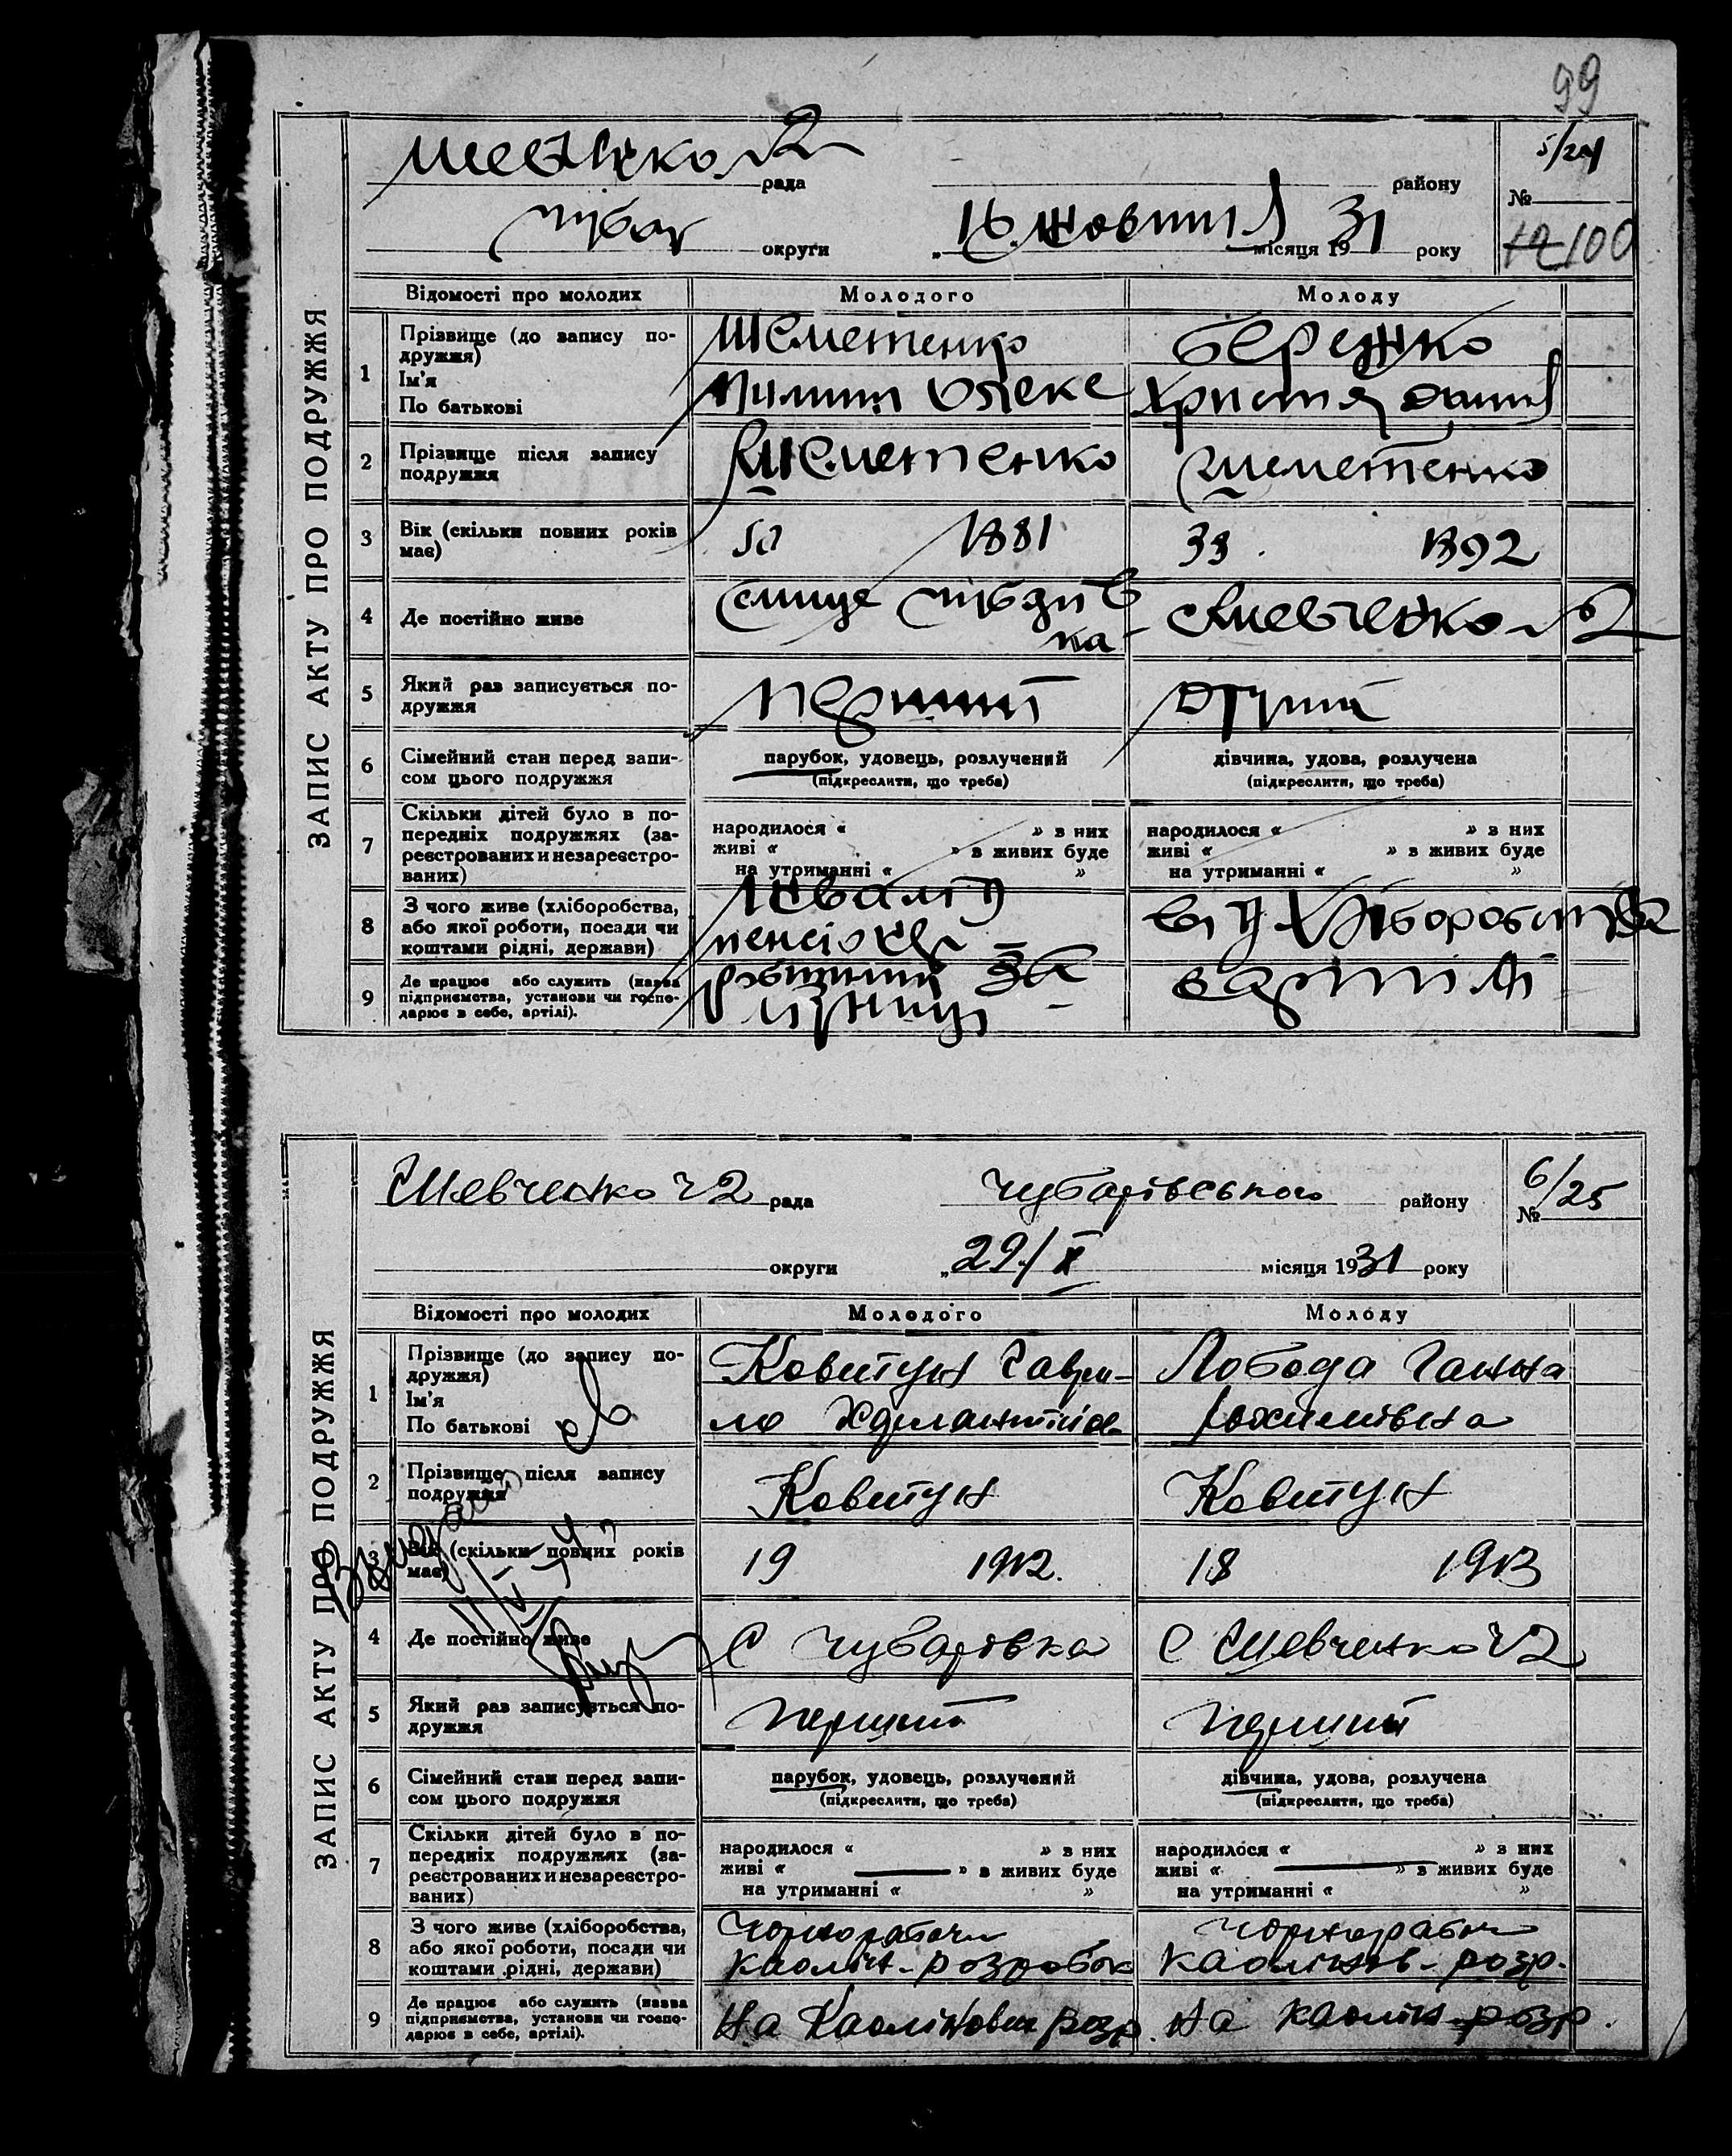 99
5/24
Шевченко №2 рада району
№
12 100
Чубар округи „16 жовтня місяця 1931 року
ЗАПИС АКТУ ПРО ПОДРУЖЖЯ
Відомості про молодих
Молодого
Молоду
1
Прізвище (до запису по-
дружжя)
Ім'я
По батькові
Шеметенко
Пилип Олекс
Бережко
Христя
2
Прізвище після запису
подружжя
Шеметенко
Шеметенко
3
Вік (скільки повних років
має)
50 1881
38 1892
4
Де постійно живе
Шевченко №2
5
Який раз записується по-
дружжя
перший
другий
6
Сімейний стан перед запи-
сом цього подружжя
парубок, удовець, розлучений
(підкреслити, що треба)
дівчина, удова, розлучена
(підкреслити, що треба)
7
Скільки дітей було в по-
передніх подружжях (за-
реєстрованих и незареєстро-
ваних)
народилося “ » з них
живі “ » з живих буде
на утриманні “ »
народилося “ » з них
живі “ » з живих буде
на утриманні “ »
8
З чого живе (хліборобства,
або якої роботи, посади чи
коштами рідні, держави)
Інвалід
пенсіонер
від хліборобства
9
Де працює або служить (назва
підприємства, установи чи госпо-
дарює в себе, артілі).
робітник за
лізниці
в артілі
Шевченко ч2 рада Чубарівського району
6/25
№
округи „29/X місяця 1931 року
ЗАПИС АКТУ ПРО ПОДРУЖЖЯ
Відомості про молодих
Молодого
Молоду
1
Прізвище (до запису по-
дружжя)
Ім'я
По батькові
Ковтун Гаври-
ло
Лобода Ганна
Юхимівна
2
Прізвище після запису
подружжя
Ковтун
Ковтун
3
Вік (скільки повних років
має)
19 1912.
18 1913
4
Де постійно живе
С Чубарівка
С Шевченко ч2
5
Який раз записується по-
дружжя
перший
перший
6
Сімейний стан перед запи-
сом цього подружжя
парубок, удовець, розлучений
(підкреслити, що треба)
дівчина, удова, розлучена
(підкреслити, що треба)
7
Скільки дітей було в по-
передніх подружжях (за-
реєстрованих и незареєстро-
ваних)
народилося “ » з них
живі “ » з живих буде
на утриманні “ »
народилося “ » з них
живі “ » з живих буде
на утриманні “ »
8
З чого живе (хліборобства,
або якої роботи, посади чи
коштами рідні, держави)
Чорноробочи
каолін-розробок
чорноробоч
каолінов-розр.
9
Де працює або служить (назва
підприємства, установи чи госпо-
дарює в себе, артілі).
На Каолінових розр.
на каолін розр.